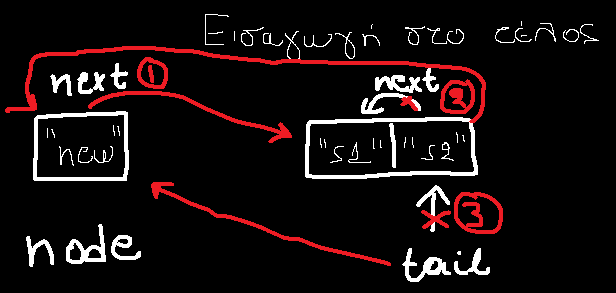 Εισαγωγή στο τέλος
next 1
next 2
"new"
"s1" "s2"
3
node
tail